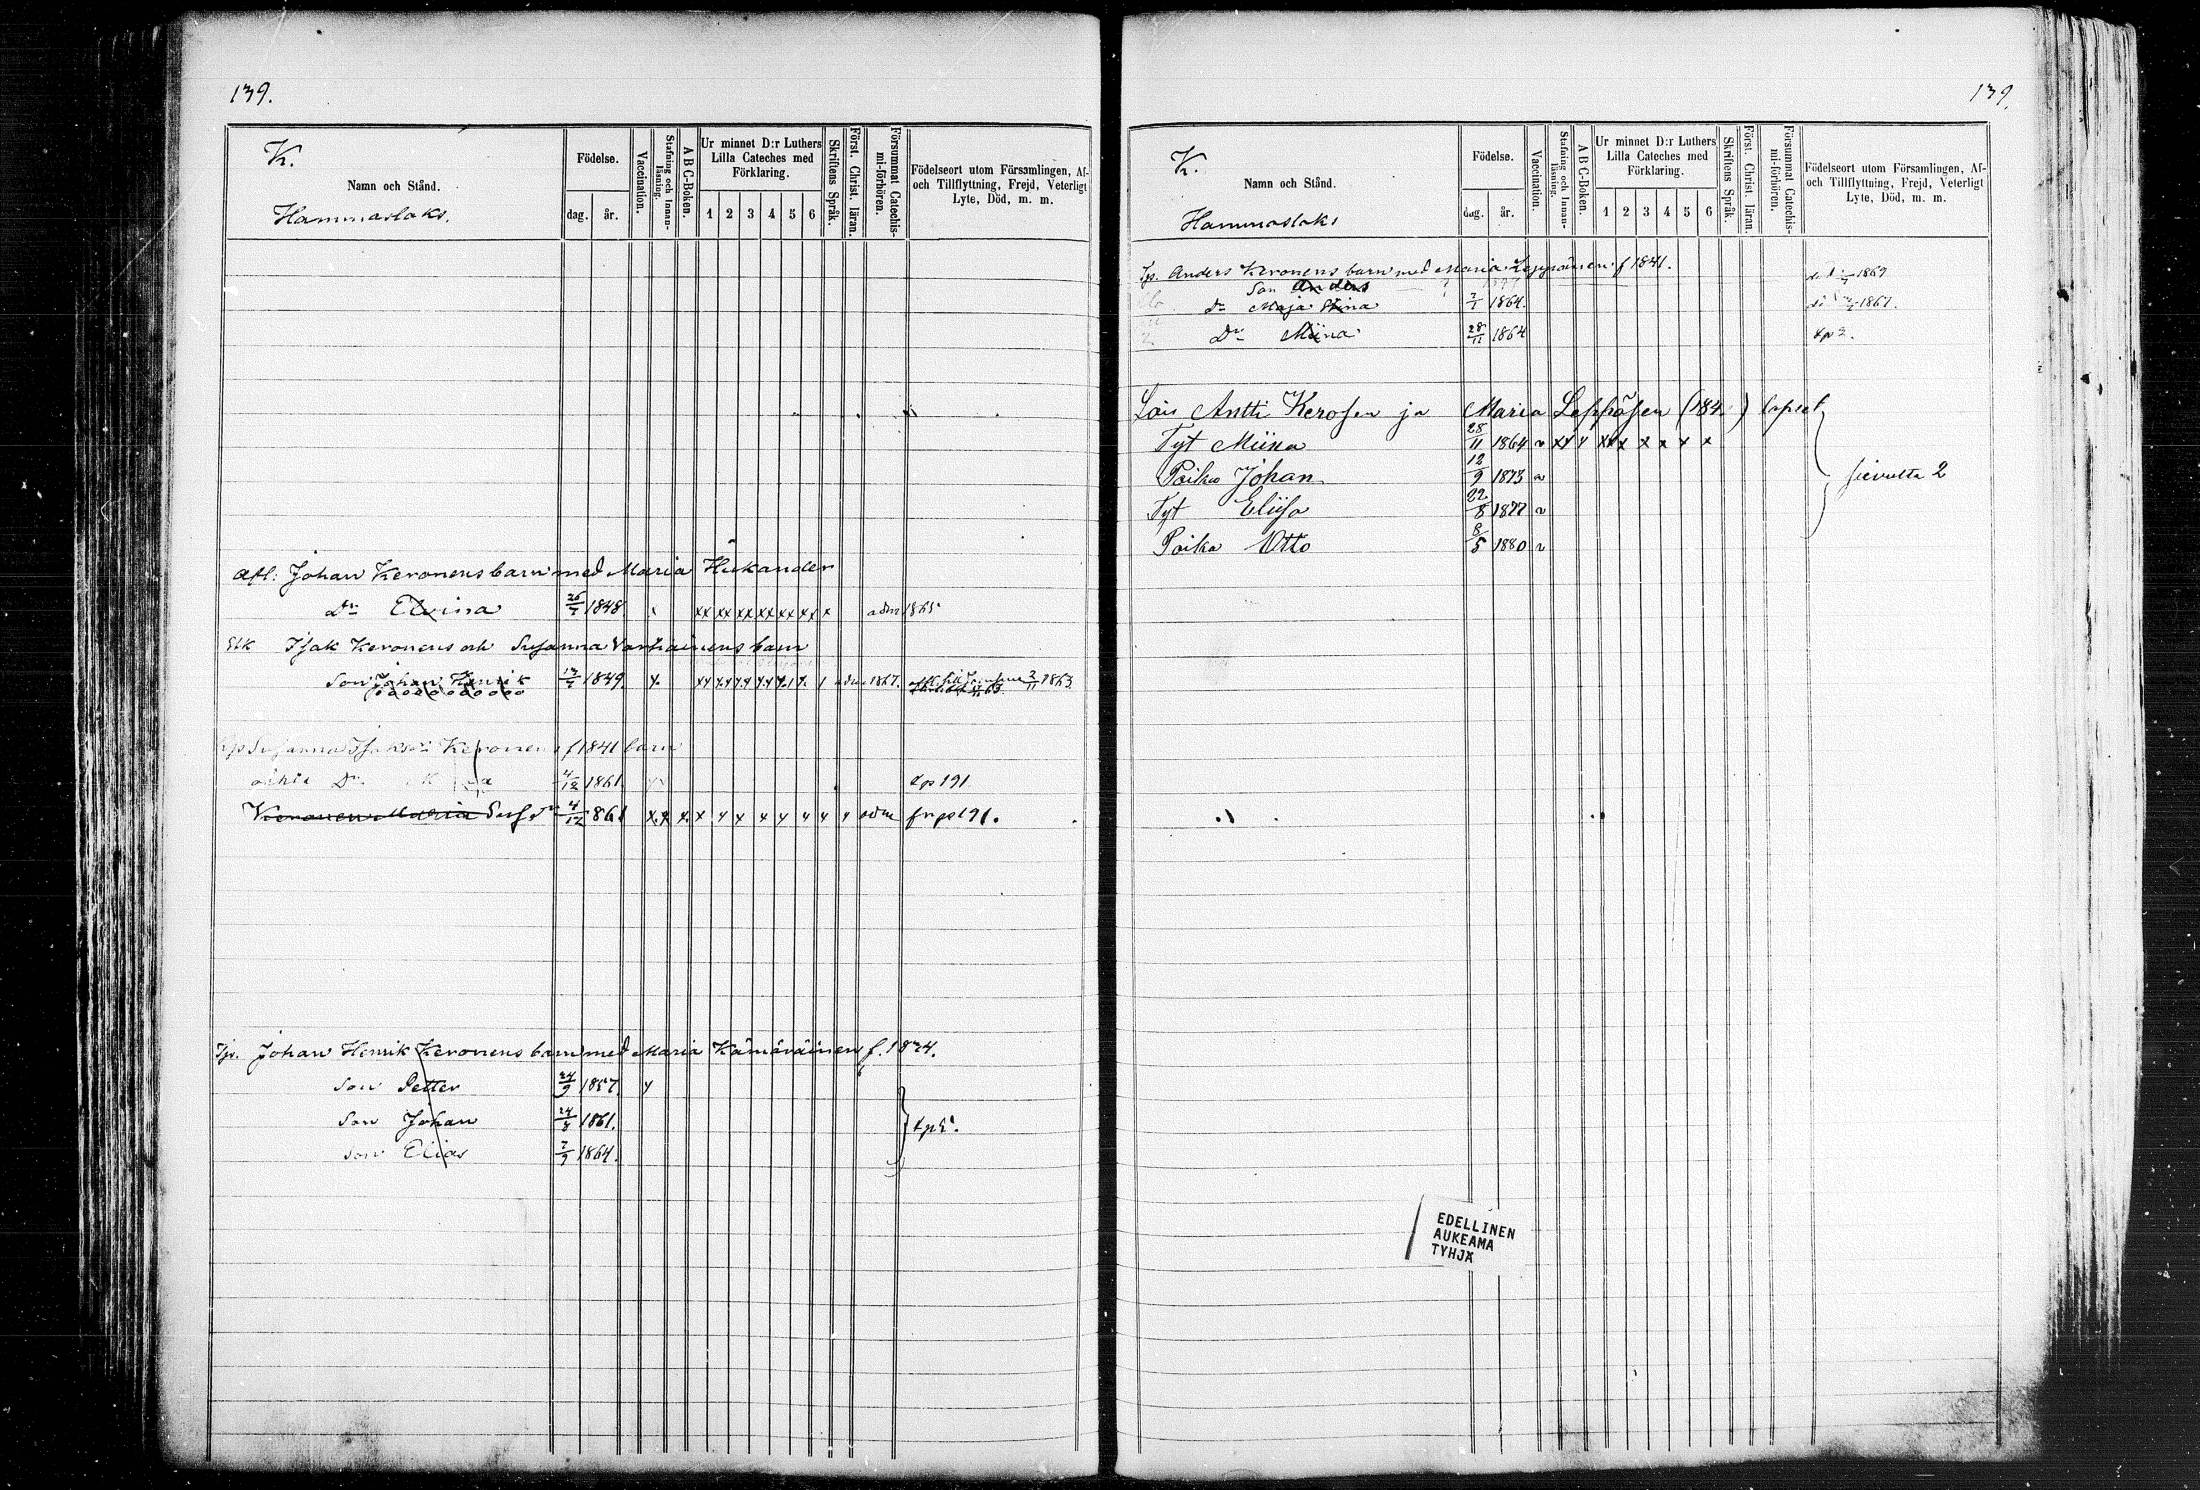 139.
K.
Namn och Stånd.
Hammaslaks.
Födelse.
dag. år.
Vaccination.
Stafning och Innan-läsning.
A B C-Boken.
Ur minnet D:r Luthers
Lilla Cateches med
Förklaring.
1 2 3 4 5 6
Skriftens Språk.
Först. Christ. läran.
Försummat Catechis-mi-förhören.
Födelseort utom Församlingen, Af-
och Tillflyttning, Frejd, Veterligt
Lyte, Död, m. m.
Afl: Johan Keronens barn med Maria Hukander
Dr Elvina 26/7 1848 x xx xx xx xx xx xx x adm 1865
Isak Keronens och Susanna Vartiainens barn
Son Johan Henrik 1849. x. adm 1867. 2/11 1863
Susanna Keronens f 1841 barn
Dr 4/12 1861 tps 191
Keronen Maria 4/12 861 x x x x x x x x x x x x adm fr ps 191.
Johan Henrik Keronens barn med Maria Kämäräinen f. 1824.
Son Petter 24/9 1857. x
Son Johan 24/8 1861.
Son Elias 7/9 1864.
139.
K.
Namn och Stånd.
Hammaslaks
Födelse.
dag. år.
Vaccination.
Stafning och Innan-läsning.
A B C-Boken.
Ur minnet D:r Luthers
Lilla Cateches med
Förklaring.
1 2 3 4 5 6
Skriftens Språk.
Först. Christ. läran.
Försummat Catechis-mi-förhören.
Födelseort utom Församlingen, Af-
och Tillflyttning, Frejd, Veterligt
Lyte, Död, m. m.
Anders Keronens barn med Maria Leppäinen f 1841.
Son Anders 1869
Dr Maja Stina 7/1 1864. 1867.
Dr Miina 28/11 1864 tp 2.
Lois Antti Kerosen ja Maria Leppäsen (184 ) lapset
Tyt Miina 28/11 1864 v xx x xx x x x x x
Poika Johan 12/9 1873 v
sivulta 2
Tyt Eliisa 22/8 1877 v
Poika Otto 8/5 1880 v
EDELLINEN
AUKEAMA
TYHJÄ